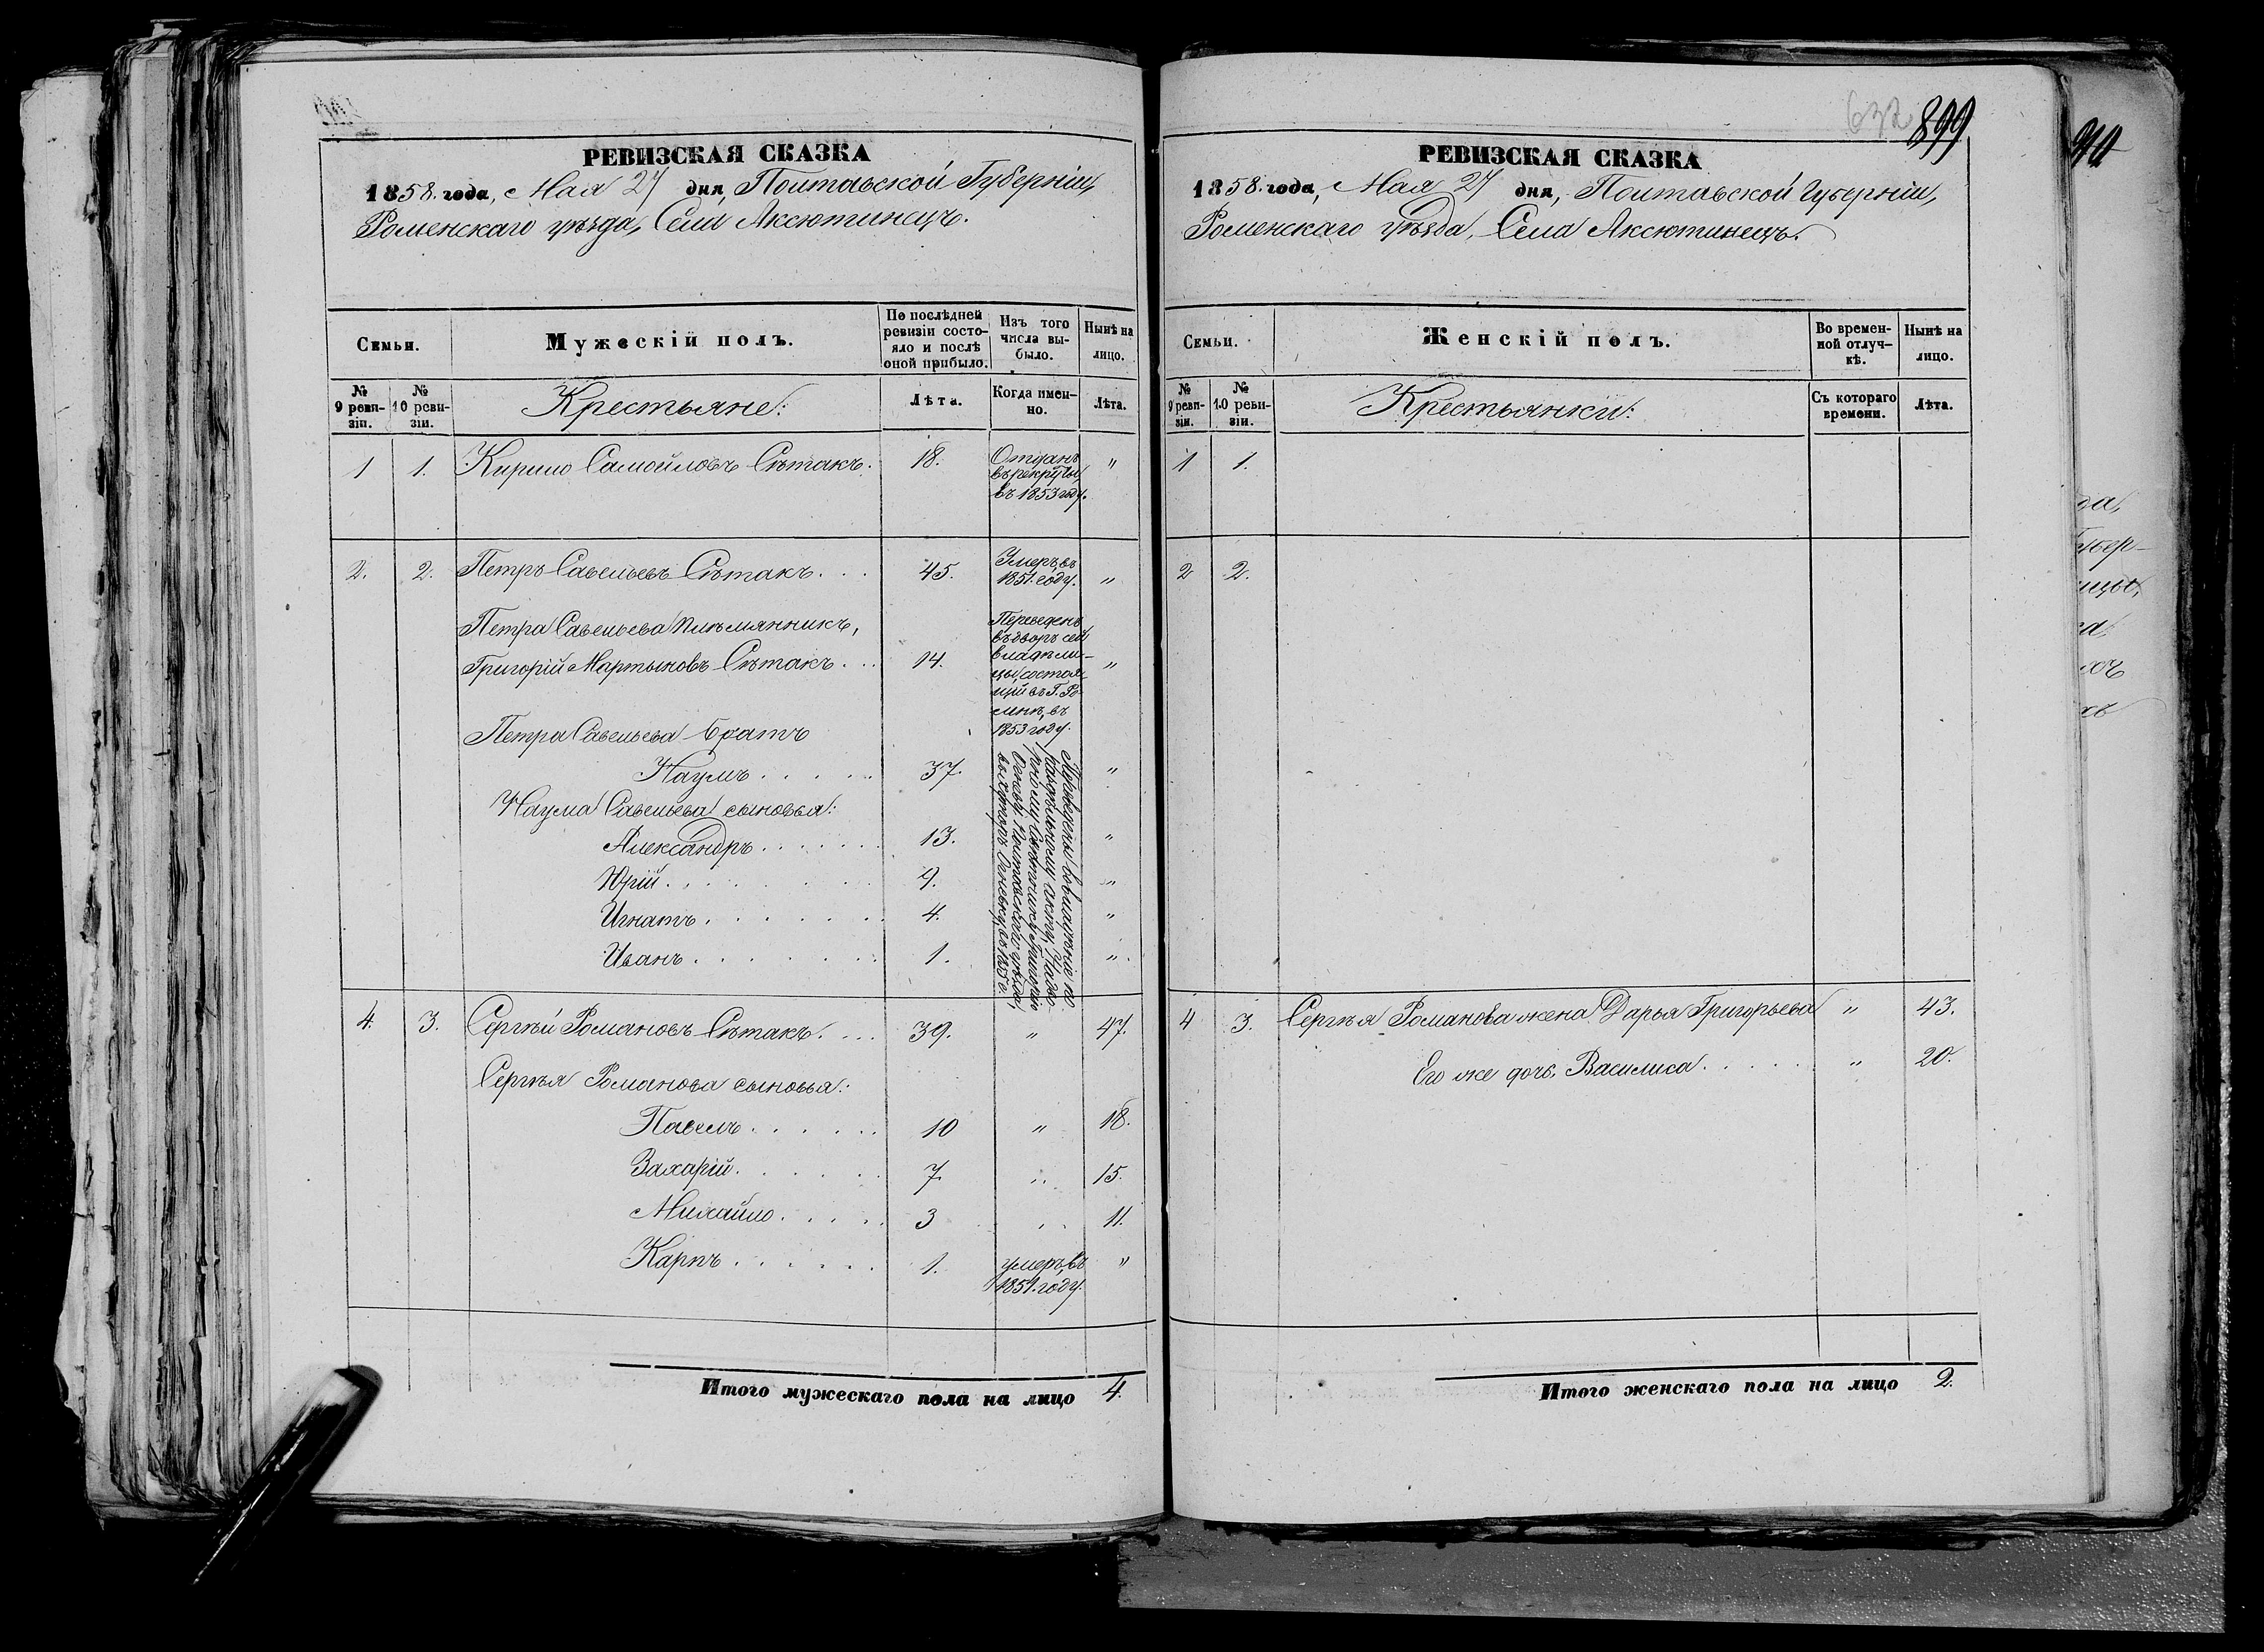 РЕВИЗСКАЯ СКАЗКА
1858. года, Мая 27 дня, Полтавской Губерніи,
Роменскаго уѣзда, Села Аксютинецъ.
Семьи.
Мужескій полъ.
По послѣдней ревизіи состояло и послѣ оной прибыло.
Изъ того числа выбыло.
Нынѣ на лицо.
№ 9 ревизіи.
№ 10 ревизіи.
Крестьяне:
Лѣта.
Когда именно.
Лѣта.
1 1. Кирило Самойловъ Сѣтакъ. 18. Отданъ въ рекруты въ 1853 году. "
2. 2. Петръ Савельевъ Сѣтакъ. . . 45. Умеръ, въ 1851. году. "
Петра Савельева племянникъ,
Григорій Мартыновъ Сѣтакъ. . . 14. Переведенъ въ дворъ сей владѣлицы, состоящій въ Г. Ромнѣ, въ 1853 году. "
Петра Савельева братъ
Наумъ . . . . . 37. "
Наума Савельева сыновья:
Александръ . . . . . . . 13. "
Юрій . . . . . . . 9. "
Игнатъ . . . . . . . 4. "
Иванъ . . . . . . . 1. "
Переведены во владѣніе по раздѣльному акту, Надворному Совѣтнику Григорію Огневу, Полтавскаго уѣзда,
4. 3. Сергѣй Романовъ Сѣтакъ. . . . 39. " 47.
Сергѣя Романова сыновья:
Павелъ . . . . . . 10 " 18.
Захарій . . . . . . 7. " 15.
Михайло . . . . . 3 " 11.
Карпъ . . . . . . 1. умеръ, въ 1851. году. "
Итого мужескаго пола на лицо 4.
632 899
РЕВИЗСКАЯ СКАЗКА
1858. года, Мая 27 дня, Полтавской Губерніи,
Роменскаго уѣзда, Села Аксютинецъ.
Семьи.
Женскій полъ.
Во временной отлучкѣ.
Нынѣ на лицо.
№ 9 ревизіи.
№ 10 ревизіи.
Крестьянки:
Съ котораго времени.
Лѣта.
1 1.
2 2.
4 3. Сергѣя Романова жена Дарья Григорьева " 43.
Его же дочь, Василиса . . . . . " 20.
Итого женскаго пола на лицо 2.